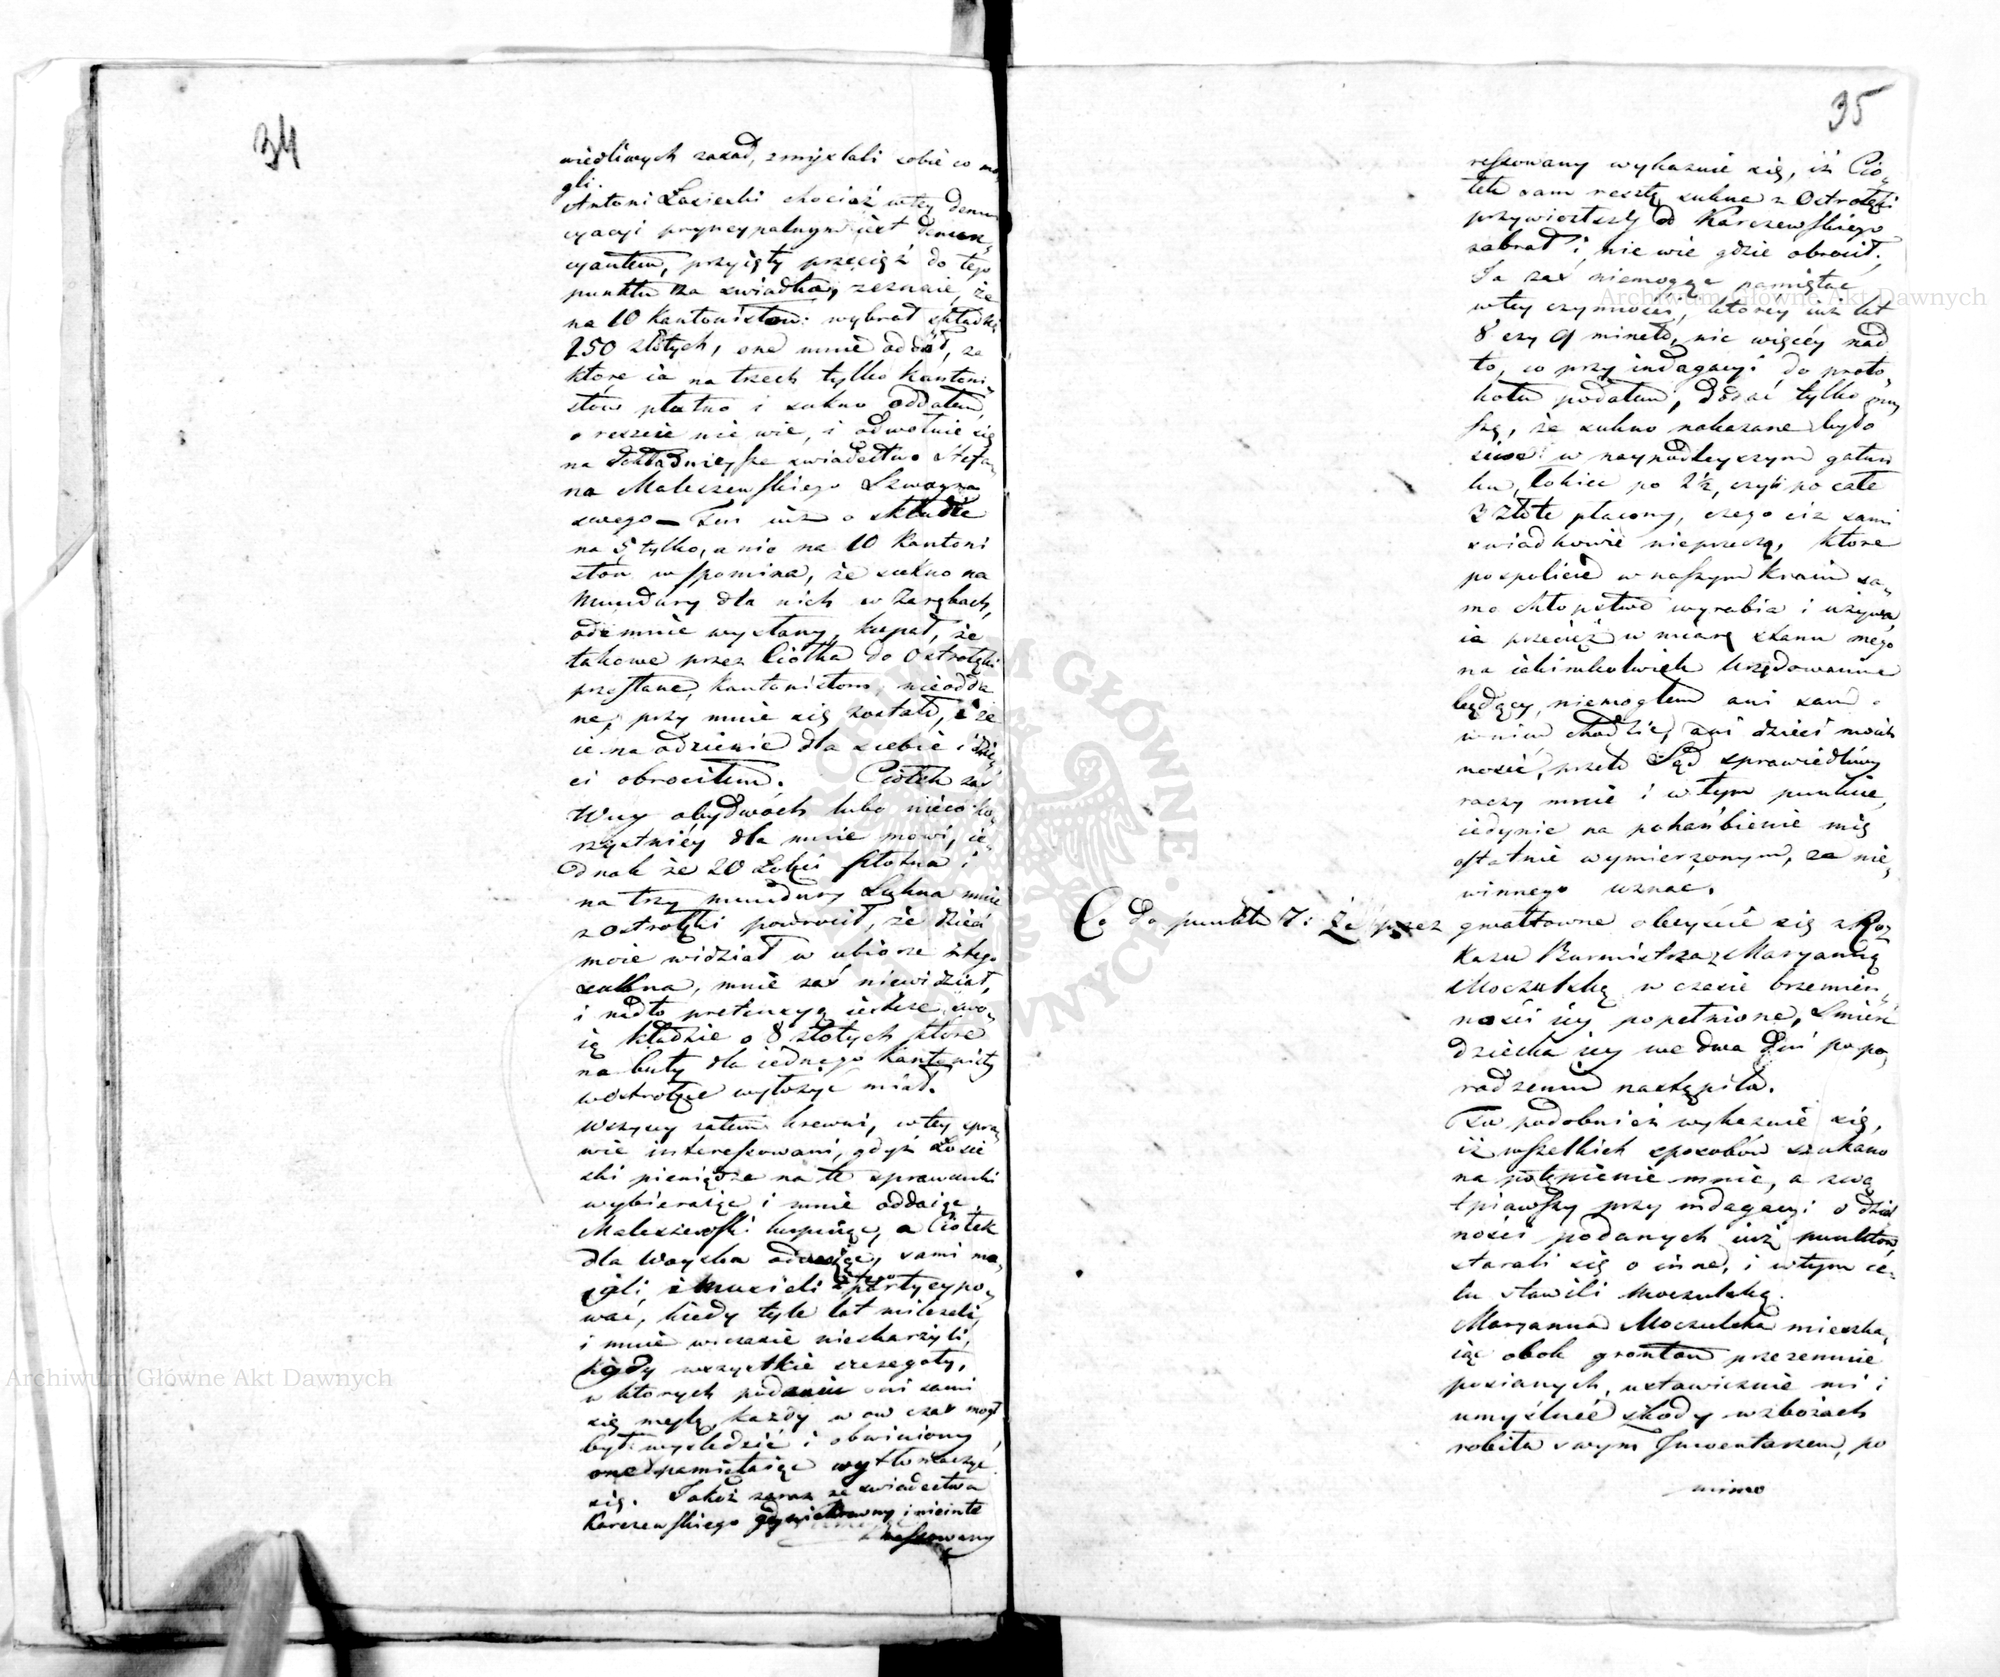 34
wiedliwych zasad, zmyslali sobie co mo„
gli.
Antoni Łasiecki chociaż w tey denun
cyacyi pryncypalnym iest denun„
cyantem, przyięty przecięż do tego
punktu za swiadka, zeznaie, że
na 10 Kantonistow wybrał składki
250 złotych, one mnie oddał, za
ktore ia na trzech tylko Kantoni„
stow płutno i sukno oddałem,
o reszcie nie wie, i odwołuie się
na dokładnieysze swiadectwo Stefa„
na Maleszewskiego Szwagra
swego — Ten iuż o składce
na 5 tylko, a nie na 10 Kantoni
stow wspomina, że sukno na
Mundury dla nich w Zarębach,
odemnie wysłany, kupał, że
takowe przez Ciołka do Ostrołęki
przesłane, kantonistom, nieodda
ne, przy mnie się zostało, i że
ie na odzienie dla siebie i dzie„
ci obrociłem. Ciołek zaś
Wuy obydwóch lubo nieco ko„
rzystniéy dla mnie mowi, ie„
dnak że 20 Łokci płotna i
na trzy mundury Sukna mnie
z Ostrołęki powrocił, że dzieci
moie widział w ubiorze z tego
sukna, mnie zaś niewidział,
i nadto pretensyą ieszcze swo„
ię kładzie o 8 złotych ktore
na buty dla iednego Kantonisty
w Ostrołęce wyłożyć miał.
Wszyscy zatem krewni, w tey spra„
wie interessowani, gdyż Łasie
cki pieniądze na te sprawunki
wybieraiąc i mnie oddaiąc,
Maleszewski kupuiąc, a Ciołek
dla Woyska odwożąc, sami mo„
gli i musieli z tego partycypo„
wać, kiedy tyle lat milczeli,
i mnie wczasie nieskarzyli,
kiedy wszystkie szczegoły,
w ktorych podaniu oni sami
się mylą, każdy w ow czas mogł
być wysledzić i obwiniony
one pamiętaiąc wytłomaczyć
się. Jakoż zaraz ze swiadectwa
Karczewskiego gdy niekrewny i nieinte
ressowany
35
ressowany wykazuie się, iż Cio„
łek sam resztę sukna z Ostrołęki
przywiozłszy od Karczewskiego
zabrał i nie wie gdzie obrocił.
Ja zaś niemogąc pamiętać
w tey czynności, ktorey iuż lat
8 czy 9 mineło, nic więcéy nad
to, co przy indagacyi do proto„
kołu podałem, dodać tylko mu„
szę, że sukno nakazane było
siwe w naypodleyszym gatun
ku, łokiec po 2½, czyli po całe
3 złote płacony, czego ciż sami
swiadkowie nieprzeczą, ktore
pospolicie w naszym kraiu sa„
mo chłopstwo wyrabia i używa
ia przecięż w miarę stanu mego
na iakimkolwiek Urzędowaniu
będący, niemogłem ani sam
w nim chodzić, ani dzieci moich
nosić, przeto Sąd sprawiedliwy
raczy mnie i w tym punkcie,
iedynie na pohańbienie mię
ostatnie wymierzonym, za nie„
winnego uznac.
Co do punktu 7: Że przez gwałtowne obeyście się z Roz
kazu Burmistrza z Maryanną
Moczulską w czasie brzemien„
ności iey popełnione, Smierć
dziecka iey we dwa dni po po„
rodzeniu nastąpiła.
Tu podobnież wykazuie się,
iż wszelkich sposobów szukano
na potępienie mnie, a zwą
tpiawszy przy indagacyi o dziel
ności podanych iuż punktow,
starali się o inne, i w tym ce„
lu stawili Moczulską.
Maryanna Moczulska mieszka„
iąc obok grontow przezemnie
posianych, ustawicznie mi i
umyślnie szkody w zbożach
robiła swym Inwentarzem, po
mimo